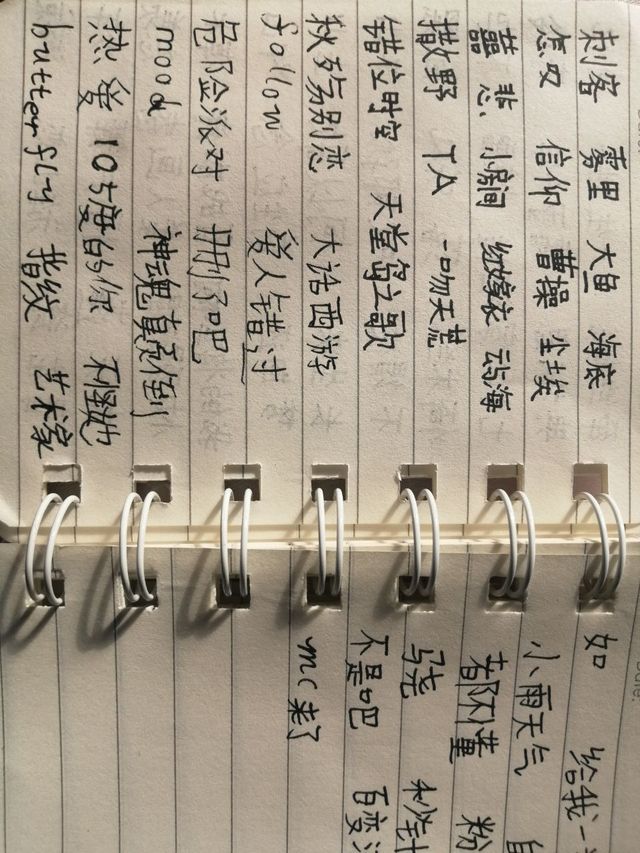 刺客 雾里 大鱼 海底
怎叹 信仰 曹操 尘埃
悲 小剧间 嫁衣 云与海
撒野 TA 一吻天荒
错位时空 天堂岛之歌
秋殇别恋 大话西游
follow 爱人错过
危险派对 删了吧
mood 神魂颠倒
热爱105度的你 不怪她
butterfly 指纹 艺术家
如 给我一
小雨天气
都不懂 粉
骁 秒针
不是吧 百变
mc来了